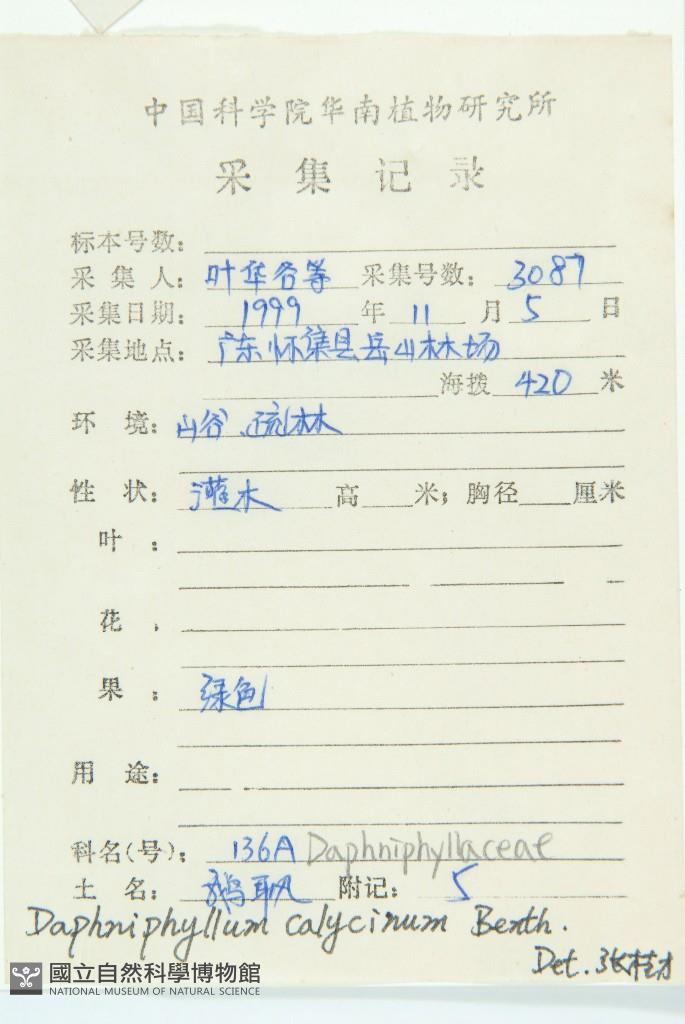 中国科学院华南植物研究所
采集记录
标本号数:
采集人: 叶华谷等 采集号数: 3087
采集日期: 1999 年 11 月 5 日
采集地点: 广东怀集县岳山林场
海拨 420 米
环境: 山谷疏林
性状: 灌木 高 米; 胸径 厘米
叶:
花:
果: 绿色
用途:
科名(号): 136A Daphniphyllaceae
土名: 附记: 5
Daphniphyllum calycinum Benth.
Det. 张桂才
國立自然科學博物館
NATIONAL MUSEUM OF NATURAL SCIENCE